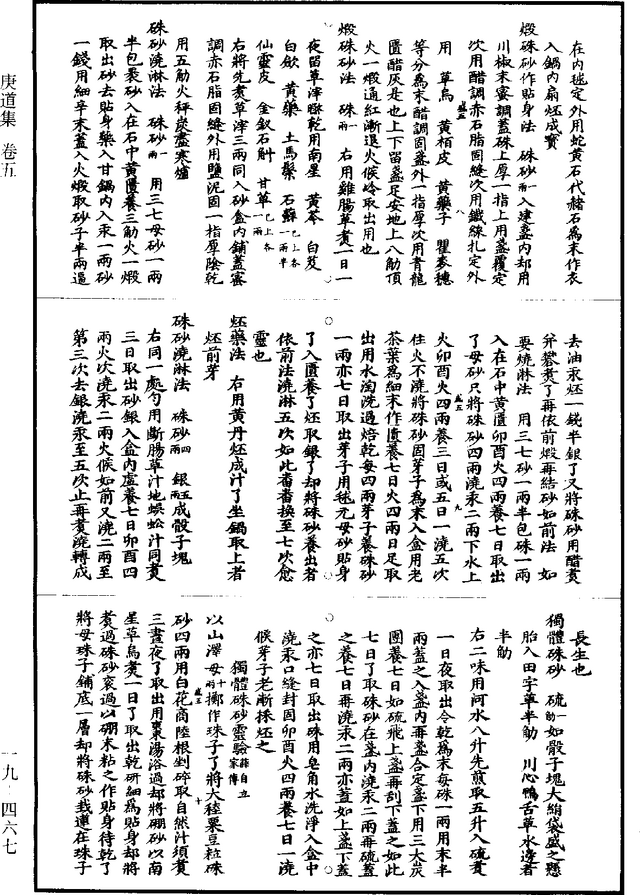 庚道集 卷五
一九·四六七
在内毬定外用蛇黃石代赭石爲末作衣
入鍋内扇坯成寶
煅硃砂作貼身法 硃砂一兩入建盞内却用
川椒末蜜調蓋硃上厚一指上用盞覆定
次用醋調赤石脂固縫次用鐵線扎定外
用 草烏 黃栢皮 黃藥子 瞿麥穗
等分爲末醋調固盞外一指厚次用青龍
匱醋灰是也上下留盞足安地上八觔頂
火一煅通紅漸退火候冷取出用也
煅硃砂法 硃一兩 右用雞腸草煮一日一
夜留草滓㬠乾用南星 黃芩 白芨
白斂 黃藥 土馬鬃 石蘚已上各一兩半
仙靈皮 金釵石斛 甘草已上各一兩
右將先煮草滓三兩同入砂盒内鋪蓋密
調赤石脂固縫外用鹽泥固一指厚陰乾
用五觔火秤炭盡寒爐
硃砂澆淋法 硃砂一兩 用三七母砂一兩
半包裹砂入在石中黃匱養三觔火一煅
取出砂去貼身藥入甘鍋内入汞一兩砂
一錢用細辛末蓋入火煅取砂子半兩逼
去油汞坯一錢半銀了又將硃砂用醋煮
笄礬煮了再依前煅再結砂如前法 如
要燒淋法 用三七砂一兩半包硃一兩
入在石中黃匱卯酉火四兩養七日取出
了母砂只將硃砂四兩澆汞二兩下水上
火卯酉火四兩養三日或五日一澆五次
住火不澆將硃砂固芽子爲末入盒用老
茶葉爲細末作匱養七日火四兩日足取
出用水淘洗過焙乾每四兩芽子養硃砂
一兩亦七日取出芽子用毬元母砂貼身
了入匱養了坯取銀了却將硃砂養出者
依前法澆淋五次如此畨畨換至七次愈
靈也
坯藥法 右用黃丹坯成汁了坐鍋取上者
坯前芽
硃砂澆淋法 硃砂四兩 銀五兩成骰子塊
右同一處勺用斷腸草汁地蜈蚣汁同煮
三日取出砂銀入盒内虛養七日卯酉四
兩火次澆汞二兩火候如前又澆二兩至
第三次去銀澆汞至五次止再煮澆轉成
長生也
獨體硃砂 硫一觔如骰子塊大絹袋盛之懸
胎入田字草半觔 川心鴨舌草水邊者
半觔
右二味用河水八升先煎取五升入硫煮
一日夜取出令乾爲末每硃一兩用末半
兩蓋之入盞内再盞合定盞下用三大炭
團養七日如硫飛上盞再刮下蓋之如此
七日了取硃砂在盞内澆汞二兩再硫蓋
之養七日再澆汞二兩亦蓋如上盞下蓋
之亦七日取出硃用皂角水洗淨入盒中
澆汞口縫封固卯酉火四兩養七日一澆
候芽子老漸採坯之
獨體硃砂靈驗薛自立家傳
以山澤母十兩擲作珠子了將大䅘粟豆粒硃
砂四兩用白花商陸根剉碎取自然汁須煮
三晝夜了取出用棗湯浴過却將硼砂以南
星草烏煮一日了取出乾研細爲貼身却將
煮過硃砂衮過以硼末粘之作貼身待乾了
將母珠子鋪底一層却將硃砂栽連在珠子